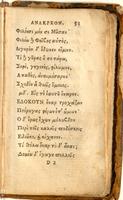 ΑΝΑΚΡΕΟΝ. 51
Φιλέουσι μέν σε Μοῦσαι
Φιλέει δὲ Φοῖβος αὐτὸς,
Λιγυρὴν δ᾽ ἔδωκεν οἴμην·
Τὸ δὲ γῆρας οὔ σε τείρει,
Σοφὲ, γηγενὴς, φίλυμνε,
Ἀπαθὴς, ἀναιμόσαρκε,
Σχεδὸν εἶ θεοῖς ὅμοιος.
μδ. Εἰς τὸ ἑαυτοῦ ὄνειρον.
ΕΔΟΚΟΥΝ ὄναρ τροχάζειν
Πτέρυγας φέρων ἐπ᾽ ὤμων·
Ὁ δ᾽ Ἔρως ἔχων μόλιβδον
Περὶ τοῖς καλοῖς ποδίσκοις
Ἐδίωκε, καὶ κίχανεν.
Τί θέλει ὄναρ τόδ᾽ εἶναι;
Δοκέω δ᾽ ἔγωγε πολλοῖς
D 2